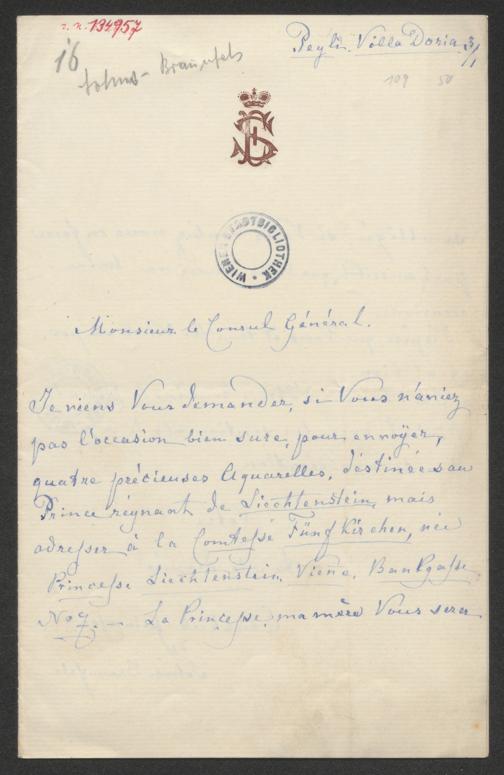 z. N. 134957
16
Solms-Braunfels
Pegli. Villa Doria. 3/1
109 50
WIENER STADTBIBLIOTHEK
Monsieur le Consul Général.
Je viens Vous demander, si Vous n'auriez
pas l'occasion bien sure, pour envoyer,
quatre précieuses Aquarelles, déstinées au
Prince régnant de Liechtenstein, mais
adresser à la Comtesse Fünfkirchen, née
Princesse Liechtenstein. Viene, Bankgasse.
No 9. — La Princesse, ma mère Vous sera